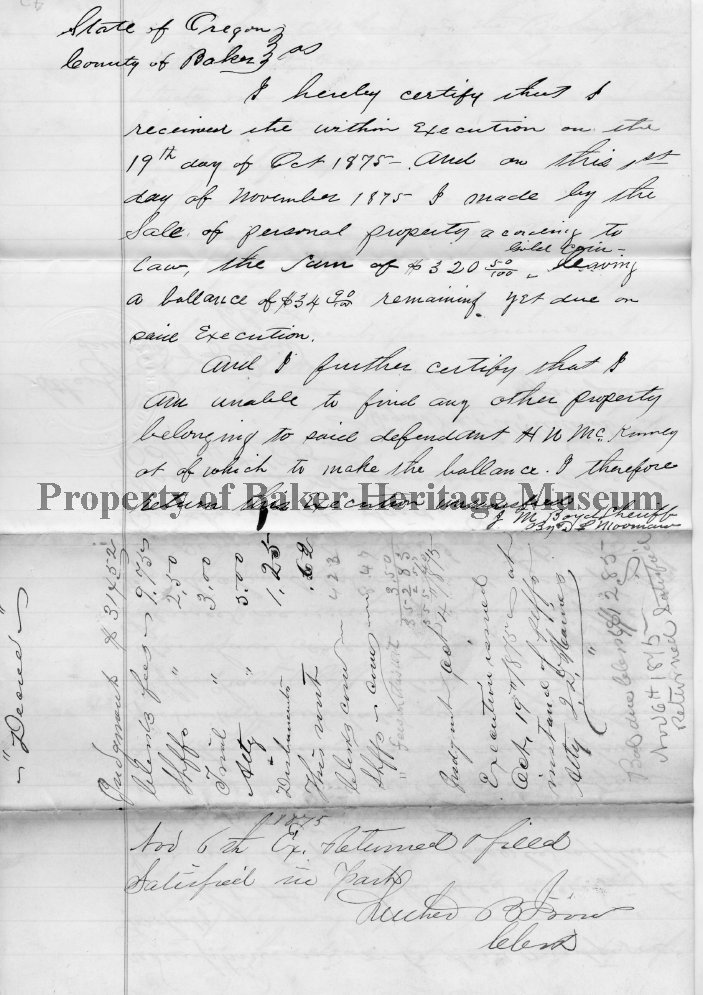 State of Oregon }
County of Baker } ss
I hereby certify that I
received the within Execution on the
19th day of Oct 1875 - And on this 1st
day of November 1875 I made by the
Sale of personal property acording to
Law, the Sum of $320 50/100 Gold Coin - leaving
a ballance of $34 90/100 remaining yet due on
said Execution.
And I further certify that I
am unable to find any other property
belonging to said defendant H N McKinney
ot of which to make the ballance. I therefore
return this Execution
Property of Baker Heritage Museum
J M Boyd Sheriff
By D L Moomaw
"Decred"
Judgment $
Clerks fees 9.75
Shffs " 2.50
Trial " 3.00
Atty " 5.00
Disbursments 1.25
This writ .62
Clerks 4 23
Shffs
3.50
Judgmt Oct 1875
Execution issued
Oct. 19th 1875 at
instance of Plffs
Atty
Bal due Clerk $12.85
Nov 6th 1875
Returned Satisfied
1875
Nov 6th Ex. returned & filed
Satisfied in Part
Luther B Ison
Clerk